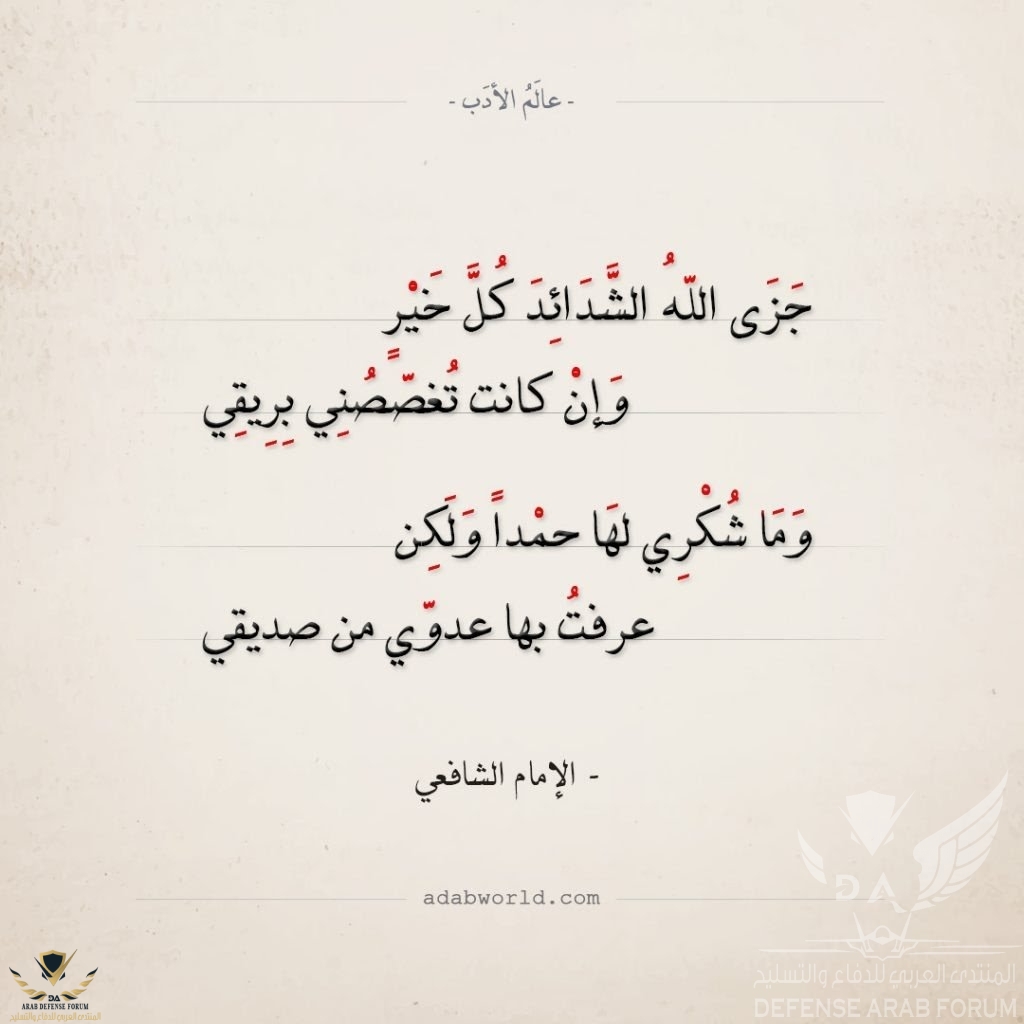 - عالَمُ الأدَب -
جَزَى اللّهُ الشَّدَائِدَ كُلَّ خَيْرٍ
وَإنْ كانت تُغصّصُنِي بِرِيقِي
وَمَا شُكْرِي لهَا حمْداً وَلَكِن
عرفتُ بها عدوّي من صديقي
- الإمام الشافعي
adabworld.com
DA
المنتدى العربي للدفاع والتسليح
DEFENSE ARAB FORUM
DA
ARAB DEFENSE FORUM
المنتدى العربي للدفاع والتسليح